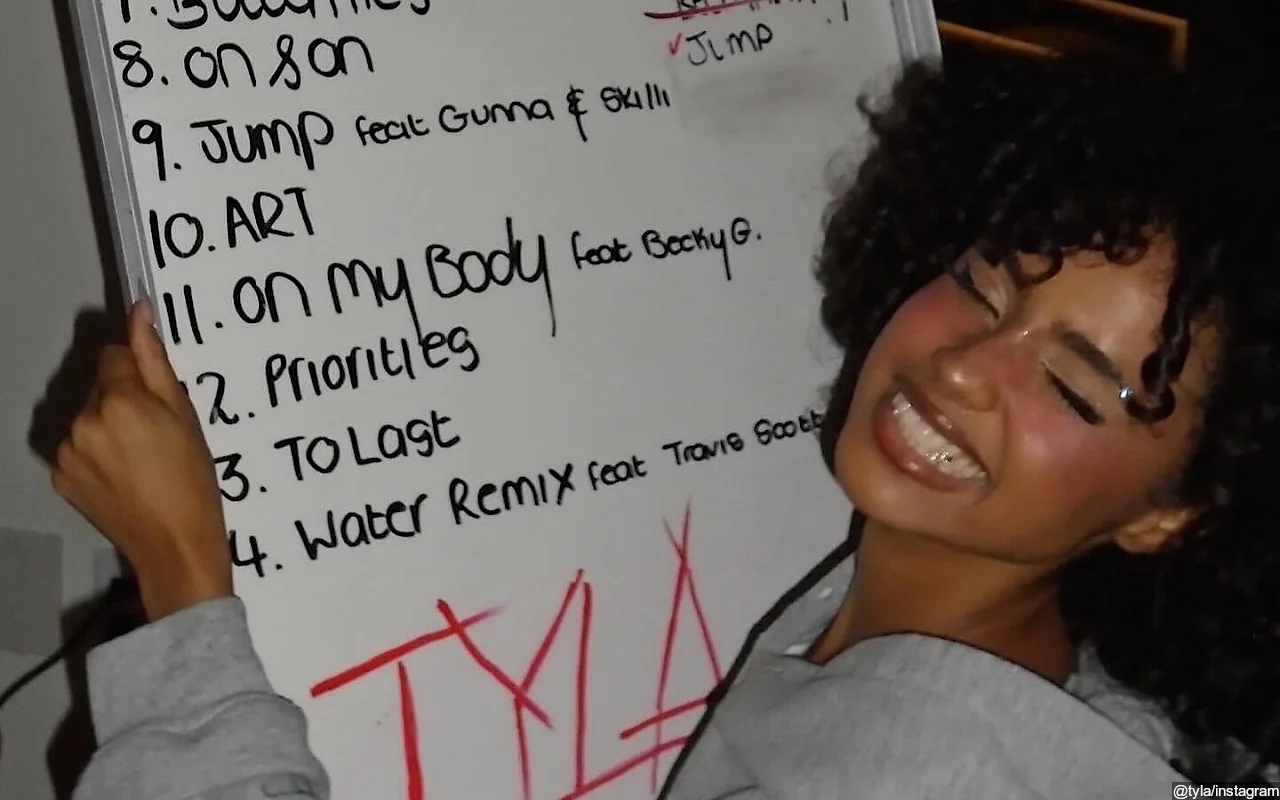 8. on & on
✓ Jump
9. Jump feat Gunna & Skilli
10. ART
11. on my Body feat Becky G.
2. Priorities
3. TO Last
4. Water Remix feat Travis Scott
TYLA
@tyla/instagram